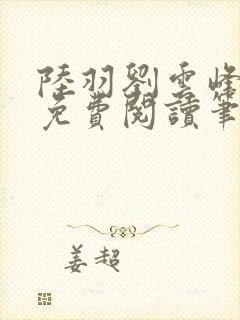 陸羽劉雲峰
免費閱讀筆
姜超